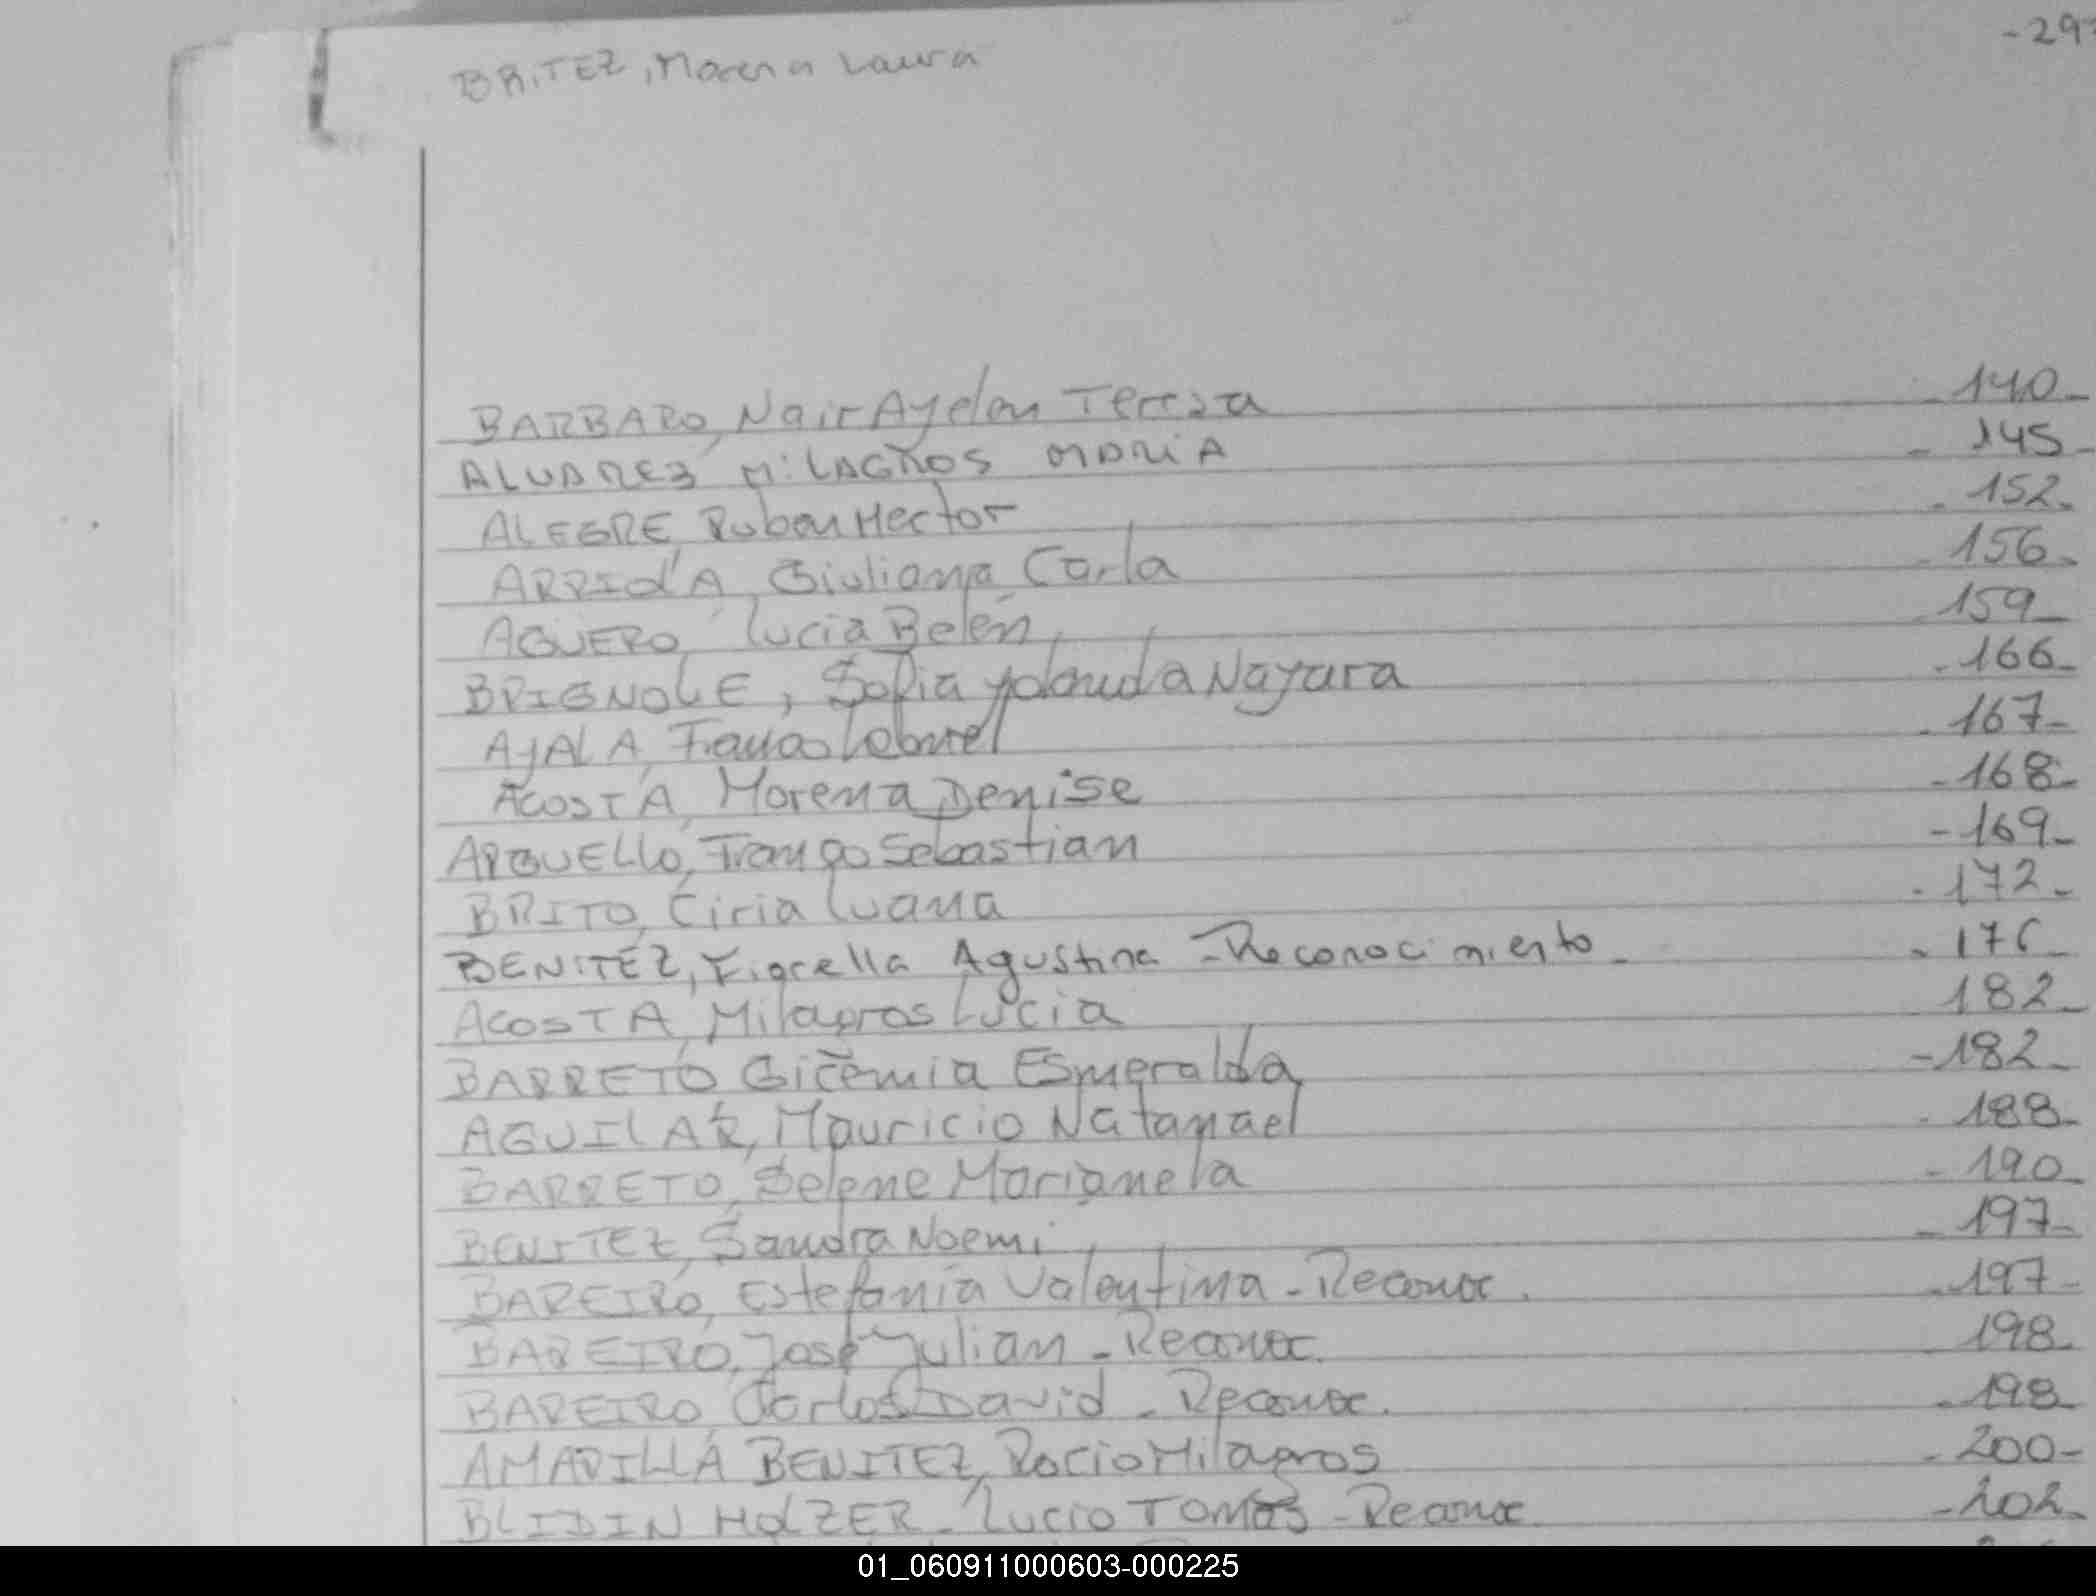 BRITEZ, Morena Laura -297
BARBARO, Nair Aydeau Teresa - 140 -
ALVAREZ MiLAGROS MARiA - 145 -
ALEGRE Ruben Hector - 152 -
ARRIOLA, Giuliana Carla - 156 -
AGUERO, Lucia Belén, 159 -
BRIGNOLE, Sofia Yolanda Nayara - 166 -
AYALA, Gabriel - 167 -
ACOSTA, Morena Denise - 168 -
ARGUELLO, Franco Sebastian - 169 -
BRITO, Ciria Luana - 172 -
BENITEZ, Fiorella Agustina - Reconocimiento - - 176 -
ACOSTA, Milagros Lucia 182 -
BARRETO Esmeralda - 182 -
AGUILAR, Mauricio Natanael - 188 -
BARRETO, Selene Marianela - 190 -
BENITEZ, Sandra Noemi - 197 -
BAREIRO, Estefania Valentina - Reconoc. - 197 -
BAREIRO, José Julian - Reconoc. 198 -
BAREIRO, Carlos David - Reconoc. - 198 -
AMARILLA BENITEZ, Rocio Milagros - 200 -
BLIDIN HOLZER - Lucio TOMAS - Reconoc - 202 -
01_060911000603-000225